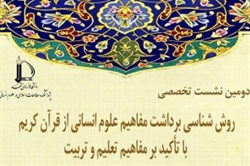 دومین نشست تخصصی
روش شناسی برداشت مفاهیم علوم انسانی از قرآن کریم
با تأکید بر مفاهیم تعلیم و تربیت